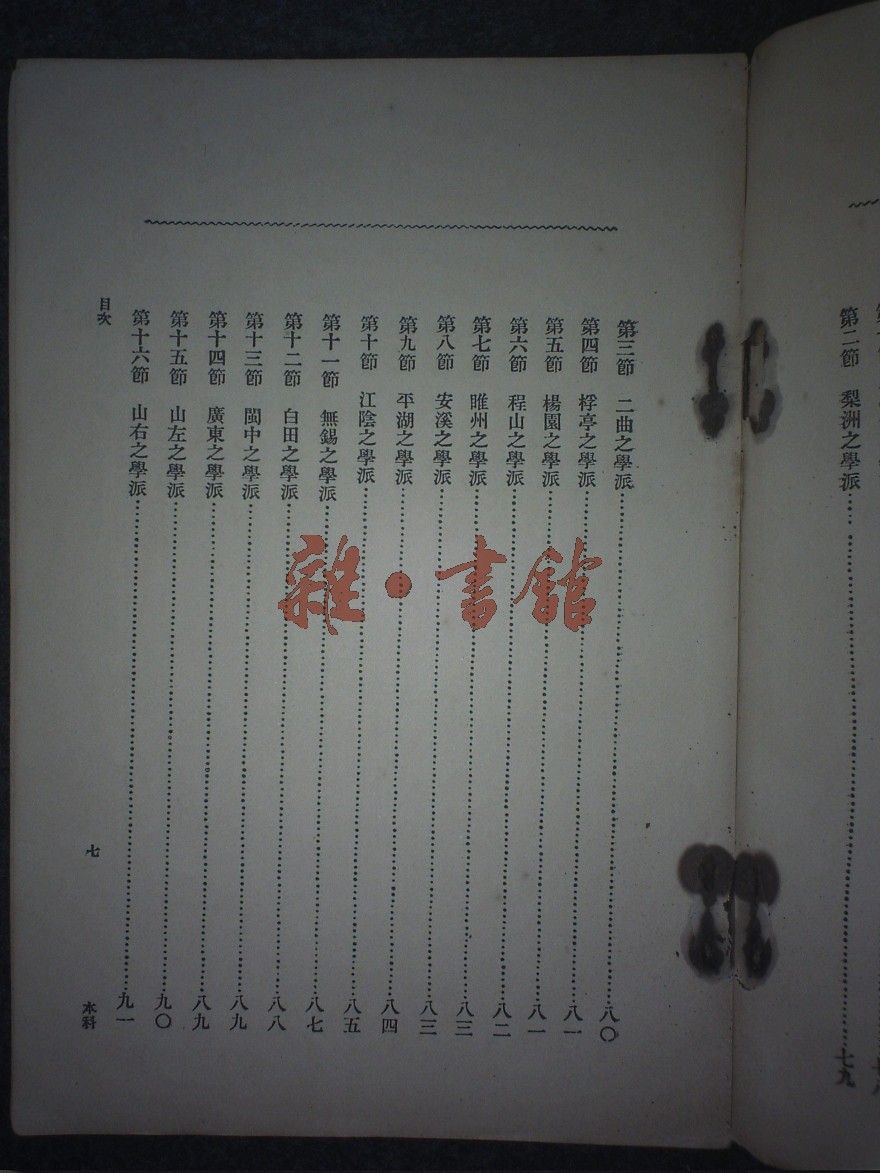 第二節　梨洲之學派⋯⋯七九
第三節　二曲之學派⋯⋯八〇
第四節　桴亭之學派⋯⋯八一
第五節　楊園之學派⋯⋯八一
第六節　程山之學派⋯⋯八二
第七節　睢州之學派⋯⋯八三
第八節　安溪之學派⋯⋯八三
第九節　平湖之學派⋯⋯八四
第十節　江陰之學派⋯⋯八五
第十一節　無錫之學派⋯⋯八七
第十二節　白田之學派⋯⋯八八
第十三節　閩中之學派⋯⋯八九
第十四節　廣東之學派⋯⋯八九
第十五節　山左之學派⋯⋯九〇
第十六節　山右之學派⋯⋯九一
目次
七
本科
雜·書館